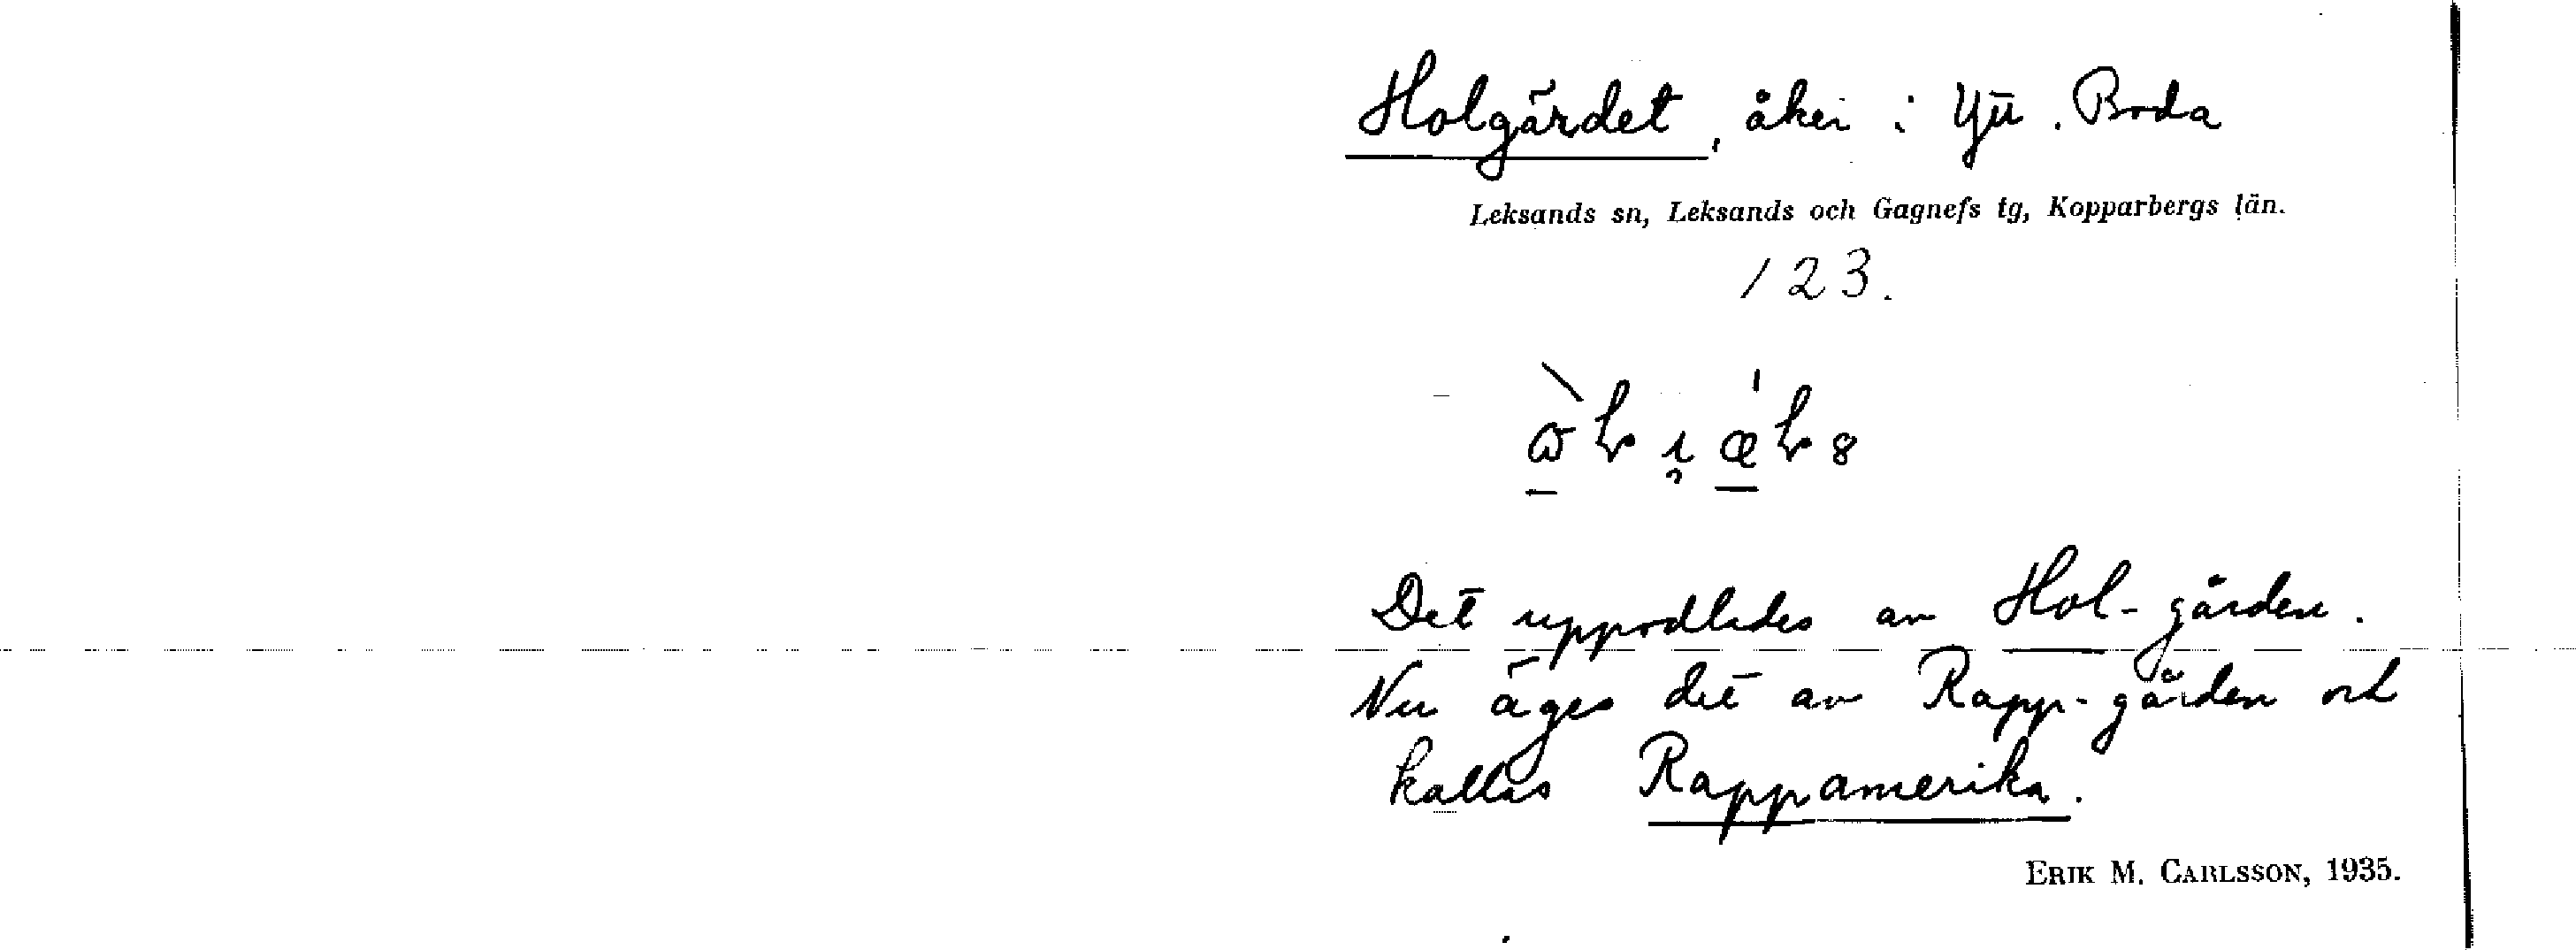 Holgärdet, åker i Ytt. Boda
Leksands sn, Leksands och Gagnefs tg, Kopparbergs län.
123.
Det uppodlades av Hol-gården.
Nu äges det av Rapp-gården och
kallas Rappamerika.
ERIK M. CARLSSON, 1935.